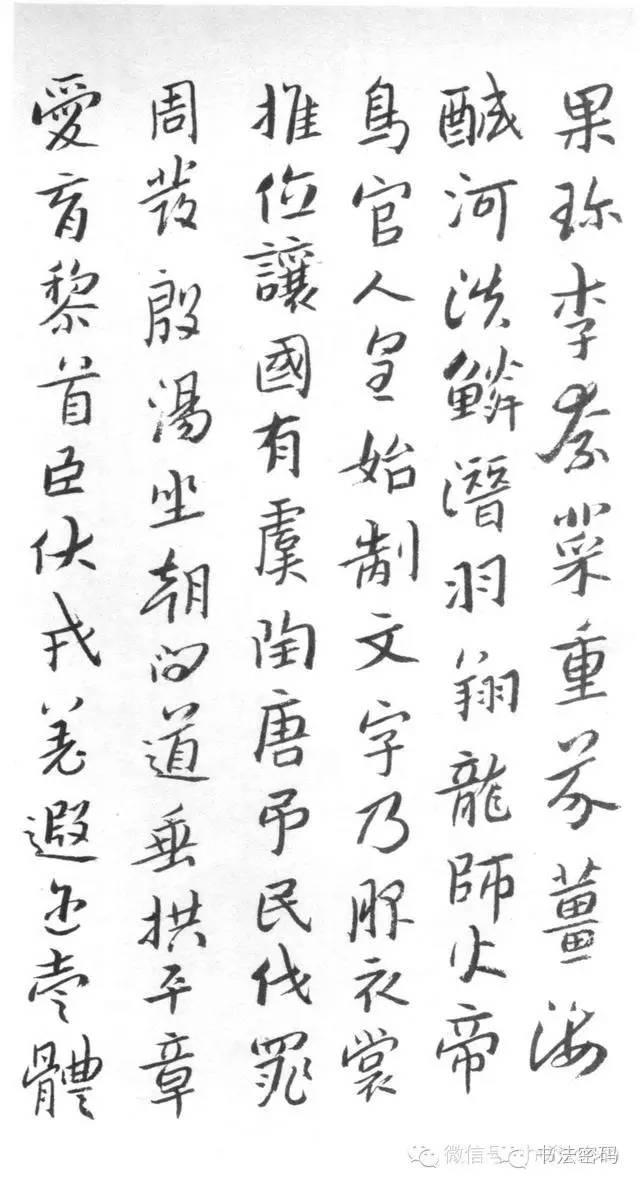 果珎李柰菜重芥薑海
醎河淡鱗潛羽翔龍師火帝
鳥官人皇始制文字乃服衣裳
推位讓國有虞陶唐吊民伐罪
周發殷湯坐朝問道垂拱平章
愛育黎首臣伏戎羌遐迩壹體
微信号
书法密码